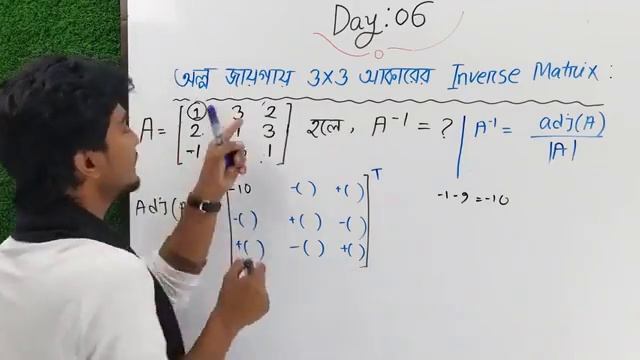 Day: 06
অল্প জায়গায় 3x3 আকারের Inverse Matrix :
A = [ 1 3 2 হলে, A⁻¹ = ? | A⁻¹ = adj(A) / |A|
2 1 3
-1 1 ]
Adj( -10 -( ) +( ) ᵀ -1-9 = -10
-( ) +( ) -( )
+( ) -( ) +( )